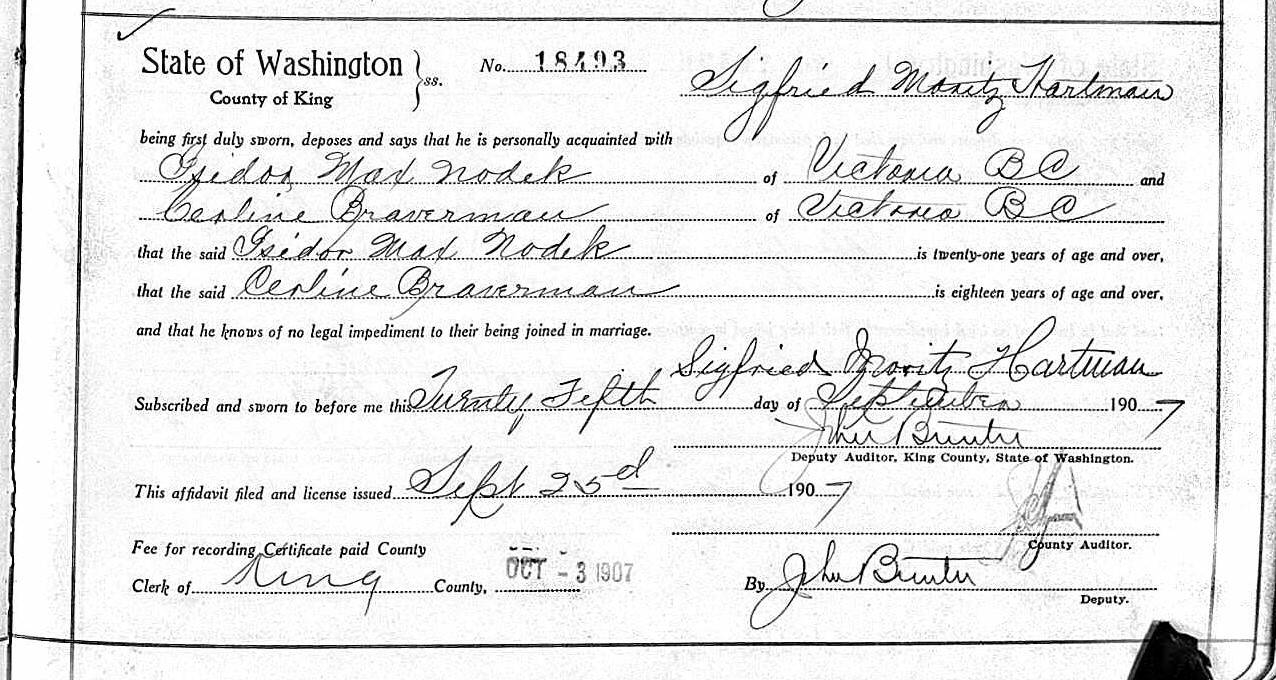 State of Washington } ss. No. 18493
County of King
Sigfried Moritz Hartman
being first duly sworn, deposes and says that he is personally acquainted with
Isidor Max Nodek of Victoria B C and
Cerline Braverman of Victoria B C
that the said Isidor Max Nodek is twenty-one years of age and over,
that the said Cerline Braverman is eighteen years of age and over,
and that he knows of no legal impediment to their being joined in marriage.
Sigfried Moritz Hartman
Subscribed and sworn to before me this Twenty Fifth day of September 1907
John
Deputy Auditor, King County, State of Washington.
This affidavit filed and license issued Sept 25d 1907
County Auditor.
Fee for recording Certificate paid County
Clerk of King County, OCT - 3 1907
By John
Deputy.